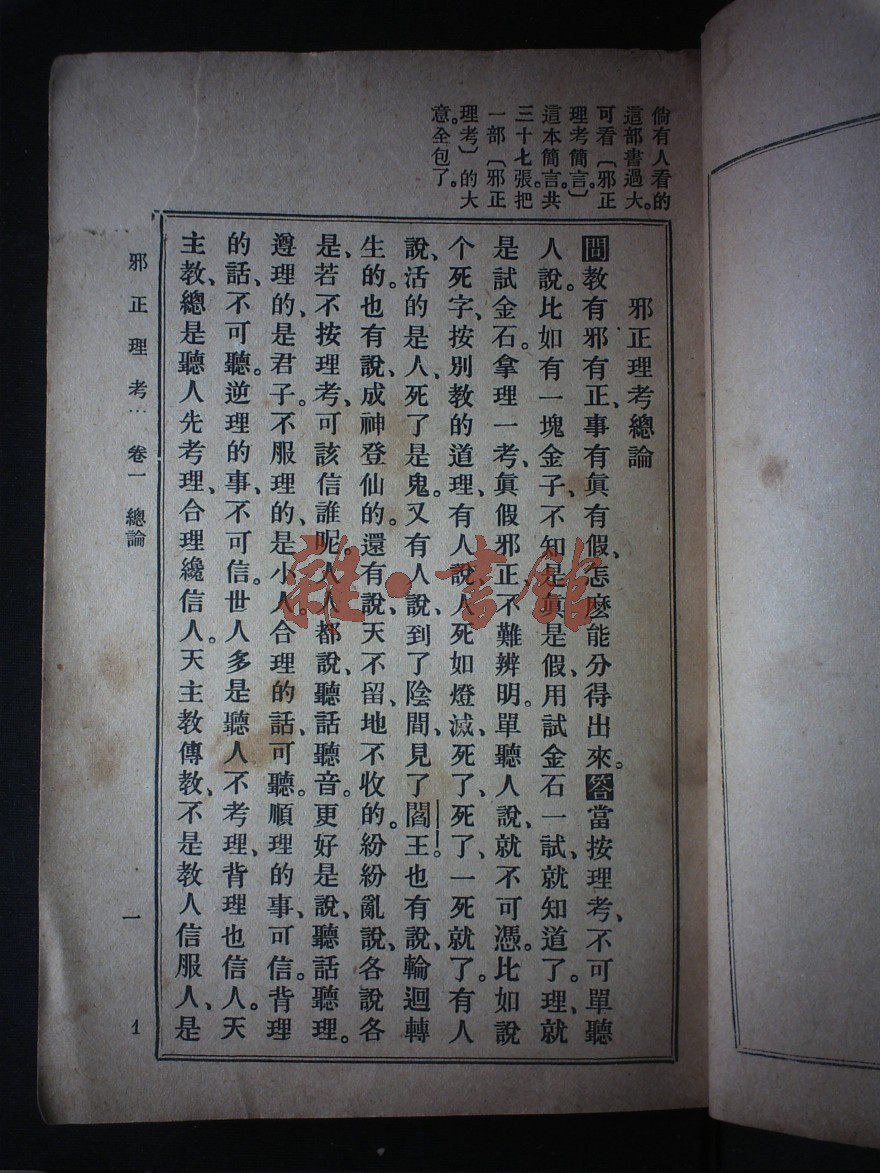 倘有人看的
這部書過大。
可看〔邪正
理考簡言〕
這本簡言。共
三十七張。把
一部〔邪正
理考〕的大
意。全包了。
邪正理考總論
問教有邪有正、事有眞有假、怎麽能分得出來。答當按理考、不可單聽
人說。比如有一塊金子、不知是眞是假、用試金石一試、就知道了。理、就
是試金石。拿理一考、眞假邪正、不難辨明。單聽人說、就不可憑。比如說
个死字、按別教的道理、有人說、人死如燈滅、死了、死了、一死就了。有人
說、活的是人、死了是鬼。又有人說、到了陰間、見了閻王。也有說、輪迴轉
生的。也有說、成神登仙的。還有說、天不留、地不收的。紛紛亂說、各說各
是、若不按理考、可該信誰呢。人人都說、聽話聽音。更好是說、聽話聽理。
遵理的、是君子。不服理的、是小人。合理的話、可聽。順理的事、可信。背理
的話、不可聽。逆理的事、不可信。世人多是聽人不考理、背理也信人。天
主教、總是聽人先考理、合理纔信人。天主教傳教、不是教人信服人、是
邪正理考⋯ 卷一 總論 一 1
雜·書館